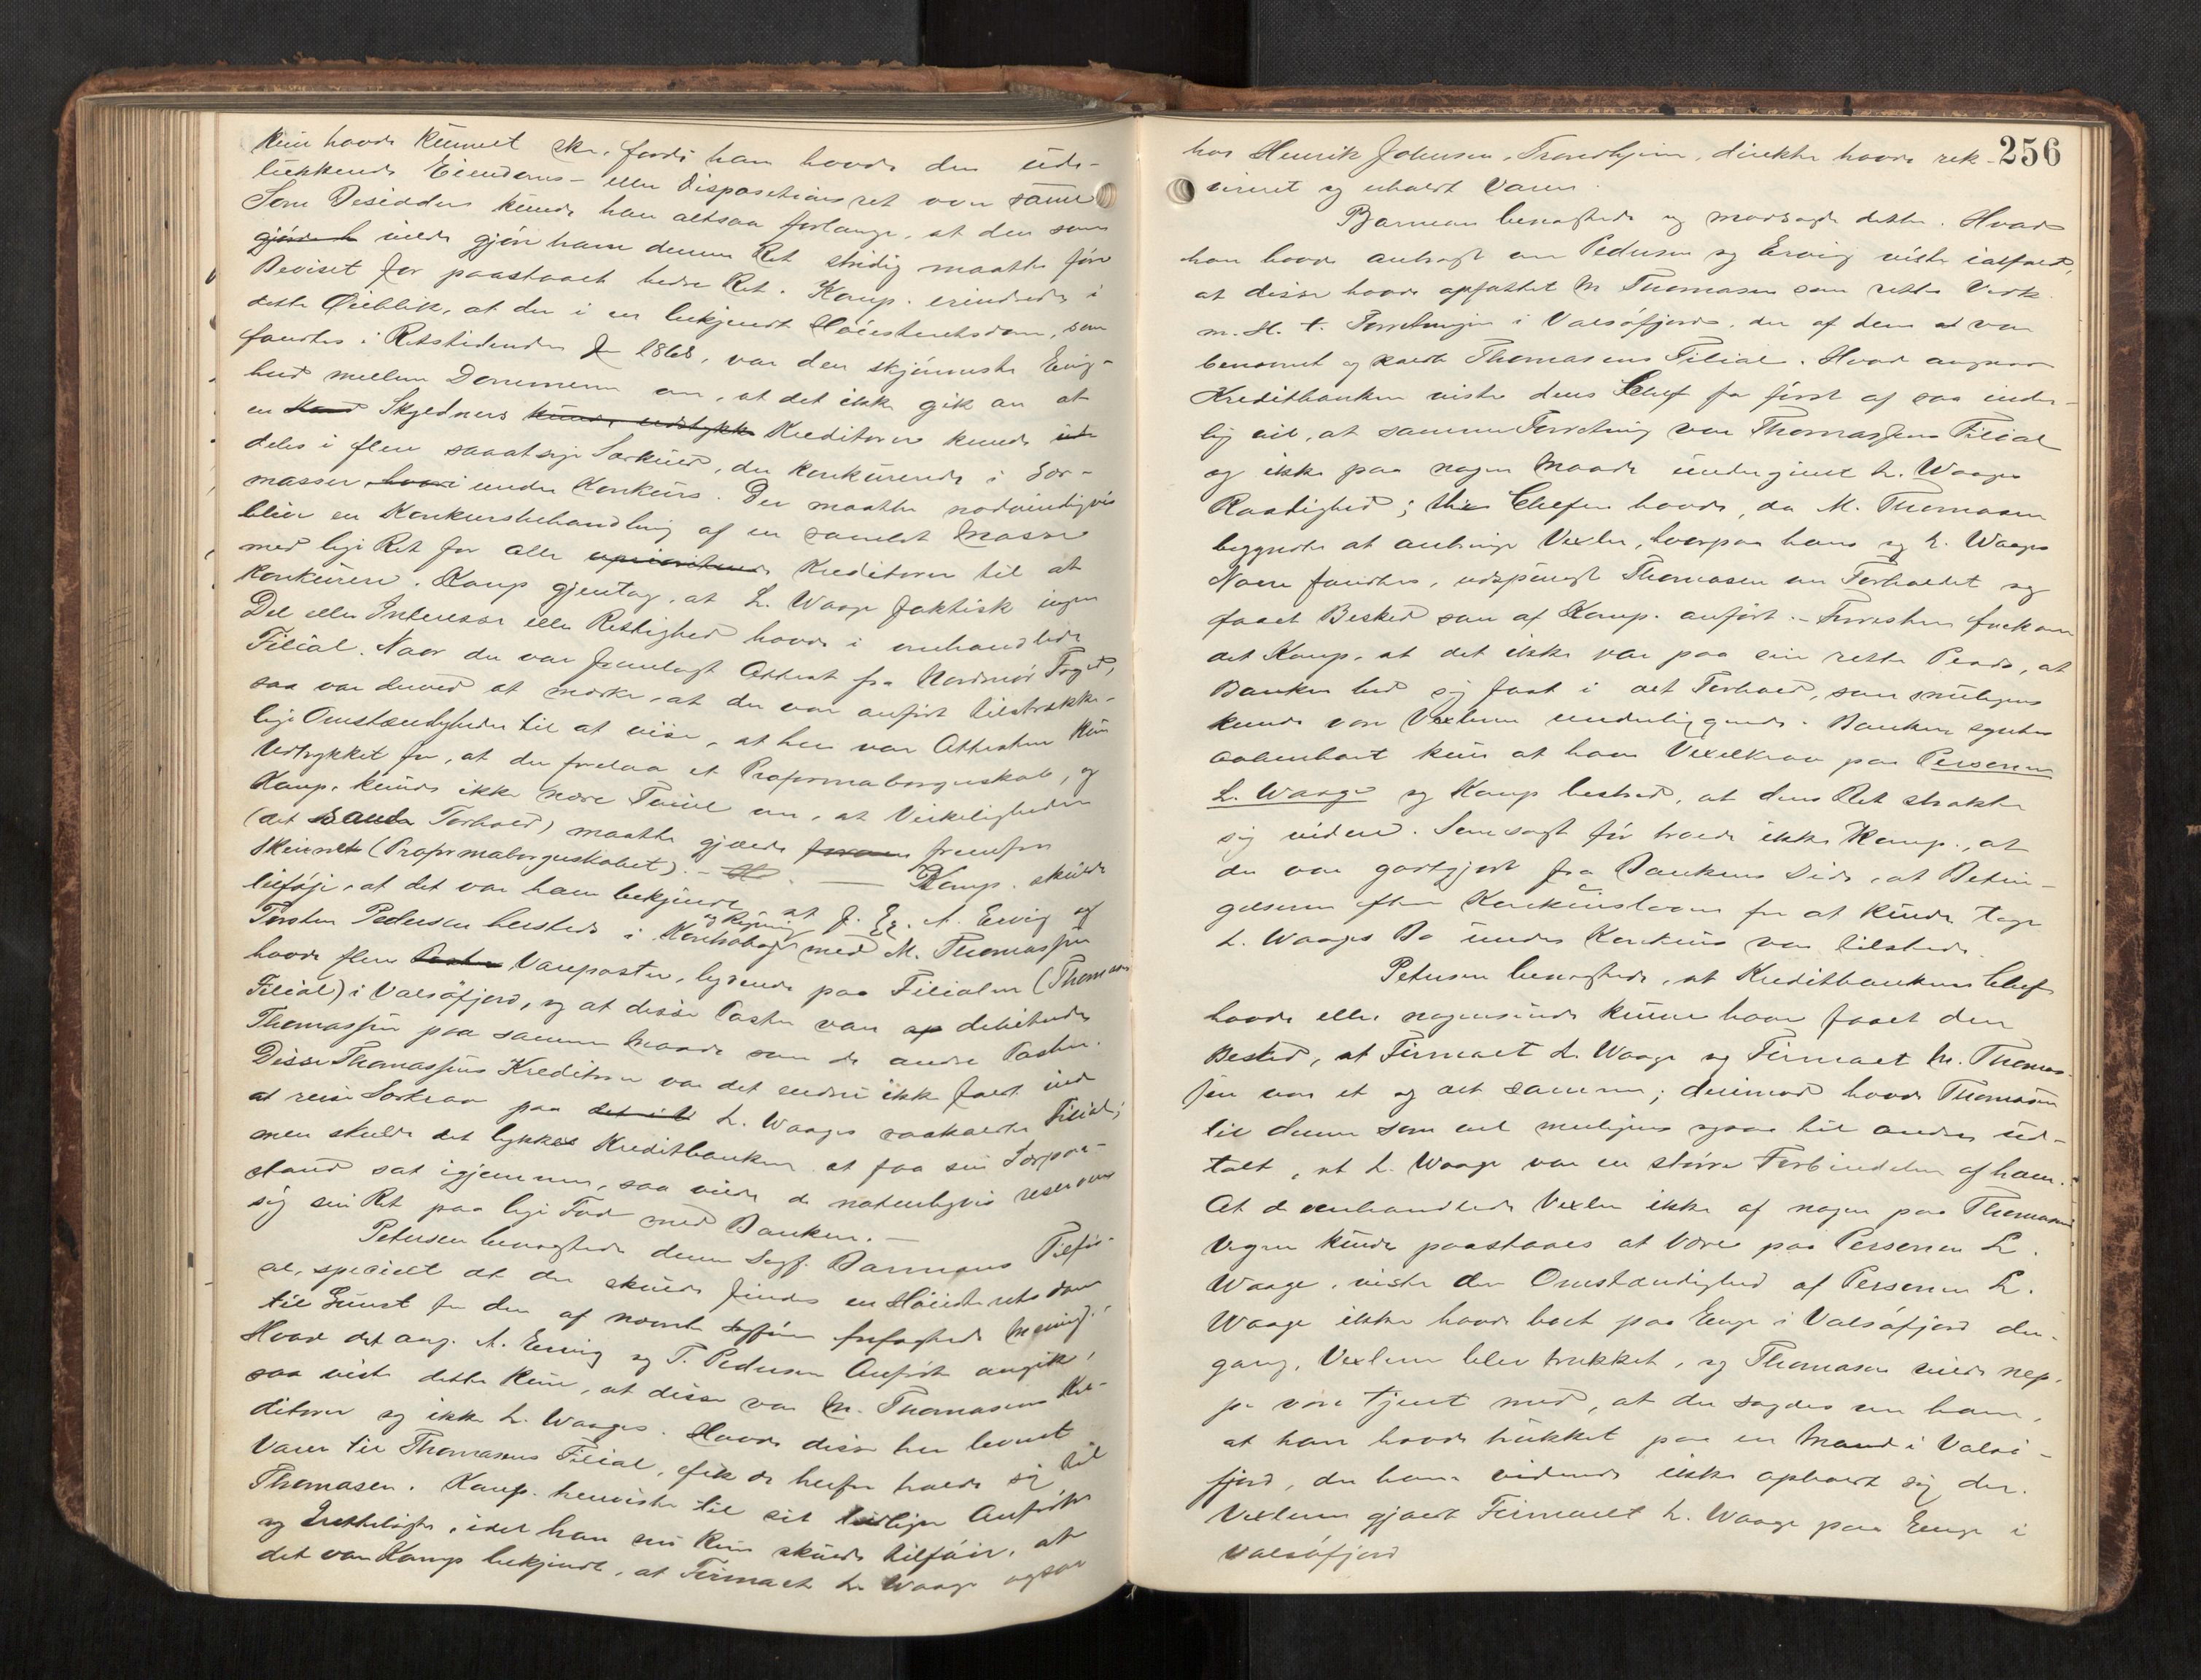 kun havde kunnet ske, fordi han havde den ude-
lukkende Eiendoms- eller Dispositionsret over samme
Som Besidder kunde han altsaa forlange, at den som
vilde gjøre ham denne Ret stridig maatte føre
Beviset for paastaaet bedre Ret. Komp. erindrede i
dette Øieblik, at der i en bekjendt Høiesteretsdom, som
fandtes i Retstidende for 1868, var den skjønneste Enig-
hed mellem Dommerne om, at det ikke gik an at
en Skyldners Kreditorer kunde
deles i flere saadanne Særkred, der konkurrerede i Sær-
masser under Konkurs. Der maatte nødvendigvis
blive en Konkursbehandling af en samlet Masse
med lige Ret for alle Kreditorer til at
konkurrere. Komp gjentog, at L. Waage faktisk ingen
Del eller Interesse eller Rettighed havde i omhandlede
Filial. Naar der var fremlagt Attest fra Nordmør Fogd,
saa var derved at mærke, at der var anført tilstrække-
lige Omstændigheder til at vise, at her var Attesten kun
Udtrykket for, at der forelaa et Proformaborgerskab, og
Komp. kunde ikke nære Tvivl om, at Virkeligheden
(det sande Forhold) maatte gjælde fremfor
Skinnet (Proformaborgerskabet). - — Komp. skulde
tilføje, at det var ham bekjendt, at J. Eg. A. Ervig og
Torsten Pedersen hersteds i Kontrabog og Regning med M. Thomassen
havde flere Vareposter, lydende paa Filialen (Thomassens
Filial) i Valsøfjord, og at disse Poster var debiteret
Thomassen paa samme Maade som de andre Poster.
Disse Thomassens Kreditorer var det endnu ikke faldt ind
at reise Særkrav paa L. Waages saakaldte Filial;
men skulde det lykkes Kreditbanken at faa sin Særpaa-
stand sat igjennem, saa vilde de naturligvis reservere
sig sin Ret paa lige Fod med Banken. —
Petersen benægtede denne Sagf. Barmans Tilfør-
sel, specielt at der skulde findes en Høiesteretsdom
til Gunst for den af nævnte Sagfører forfægtede Mening.
Hvad det ang. A. Ervig og T. Pedersen Anførte angik,
saa viste dette kun, at disse var M. Thomassens Kre-
ditorer og ikke L. Waages. Havde disse her levert
Varer til Thomassens Filial, fik de herfor holde sig til
Thomasen. Komp. henviste til sit tidligere Anførte
og Fremlagte, idet han nu kun skulde tilføie, at
det var Komp bekjendt, at Firmaet L. Waage ogsaa
256
hos Henrik Johnsen, Trondhjem, direkte havde rek-
vireret og erholdt Varer.
Barman benægtede og modsagde dette. Hvad
han havde anbragt om Pedersen og Ervig viste ialfald,
at disse havde opfattet M Thomasen som rette Vedk.
m. H. t. Forretningen i Valsøfjord, der af dem var
benævnt og kaldt Thomasens Filial. Hvad angaar
Kreditbanken vidste dens Chef fra først af saa inder-
lig vel, at samme Forretning var Thomassens Filial
og ikke paa nogen Maade undergivet L. Waages
Raadighed; thi Chefen havde, da M. Thomasen
begyndte at anbringe Vexler, hvorpaa hans og L. Waages
Navne fandtes, udspurgt Thomasen om Forholdet og
faaet Besked som af Komp. anført. - Forresten fandt
Komp., at det ikke var paa sin rette Plads, at
Banken lod sig faat i det Forhold, som muligens
kunde være Vexlerne underliggende. Banken syntes
aabenbart kun at have Vexelkrav paa Personen
L. Waage og Komp bestred, at dens Ret strakte
sig videre. Som sagt før troede ikke Komp., at
der var godtgjort fra Bankens Side, at Betin-
gelserne efter Konkursloven for at kunde tage
L. Waages Bo under Konkurs var tilstede.
Petersen benægtede, at Kreditbankens Chef
havde eller nogensinde kunne have faaet den
Besked, at Firmaet L. Waage og Firmaet M. Thomas-
sen var et og det samme; derimod havde Thomasen
til denne som vel muligens ogsaa til andre ud-
talt, at L. Waage var en større Forbindelse af ham.
At de omhandlede Vexler ikke af nogen paa Thomasens
Vegne kunde paastaaes at være paa Personen L.
Waage, viste den Omstændighed af Personen L.
Waage ikke havde boet paa Enge i Valsøfjord den-
gang, Vexlerne blev trukket, og Thomasen vilde nep-
pe være tjent med, at der sagdes om ham,
at han havde trukket paa en Mand i Valsø-
fjord, der hans vidende ikke opholdt sig der.
Vexlerne gjaldt Firmaet L. Waage paa Enge i
Valsøfjord